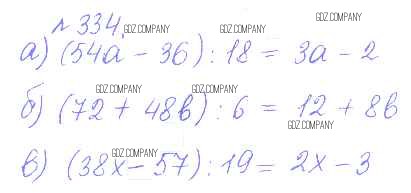 № 334.
GDZ.COMPANY GDZ.COMPANY
а) (54а − 36) : 18 = 3а − 2
GDZ.COMPANY GDZ.COMPANY
б) (72 + 48в) : 6 = 12 + 8в
GDZ.COMPANY
GDZ.COMPANY
в) (38х − 57) : 19 = 2х − 3